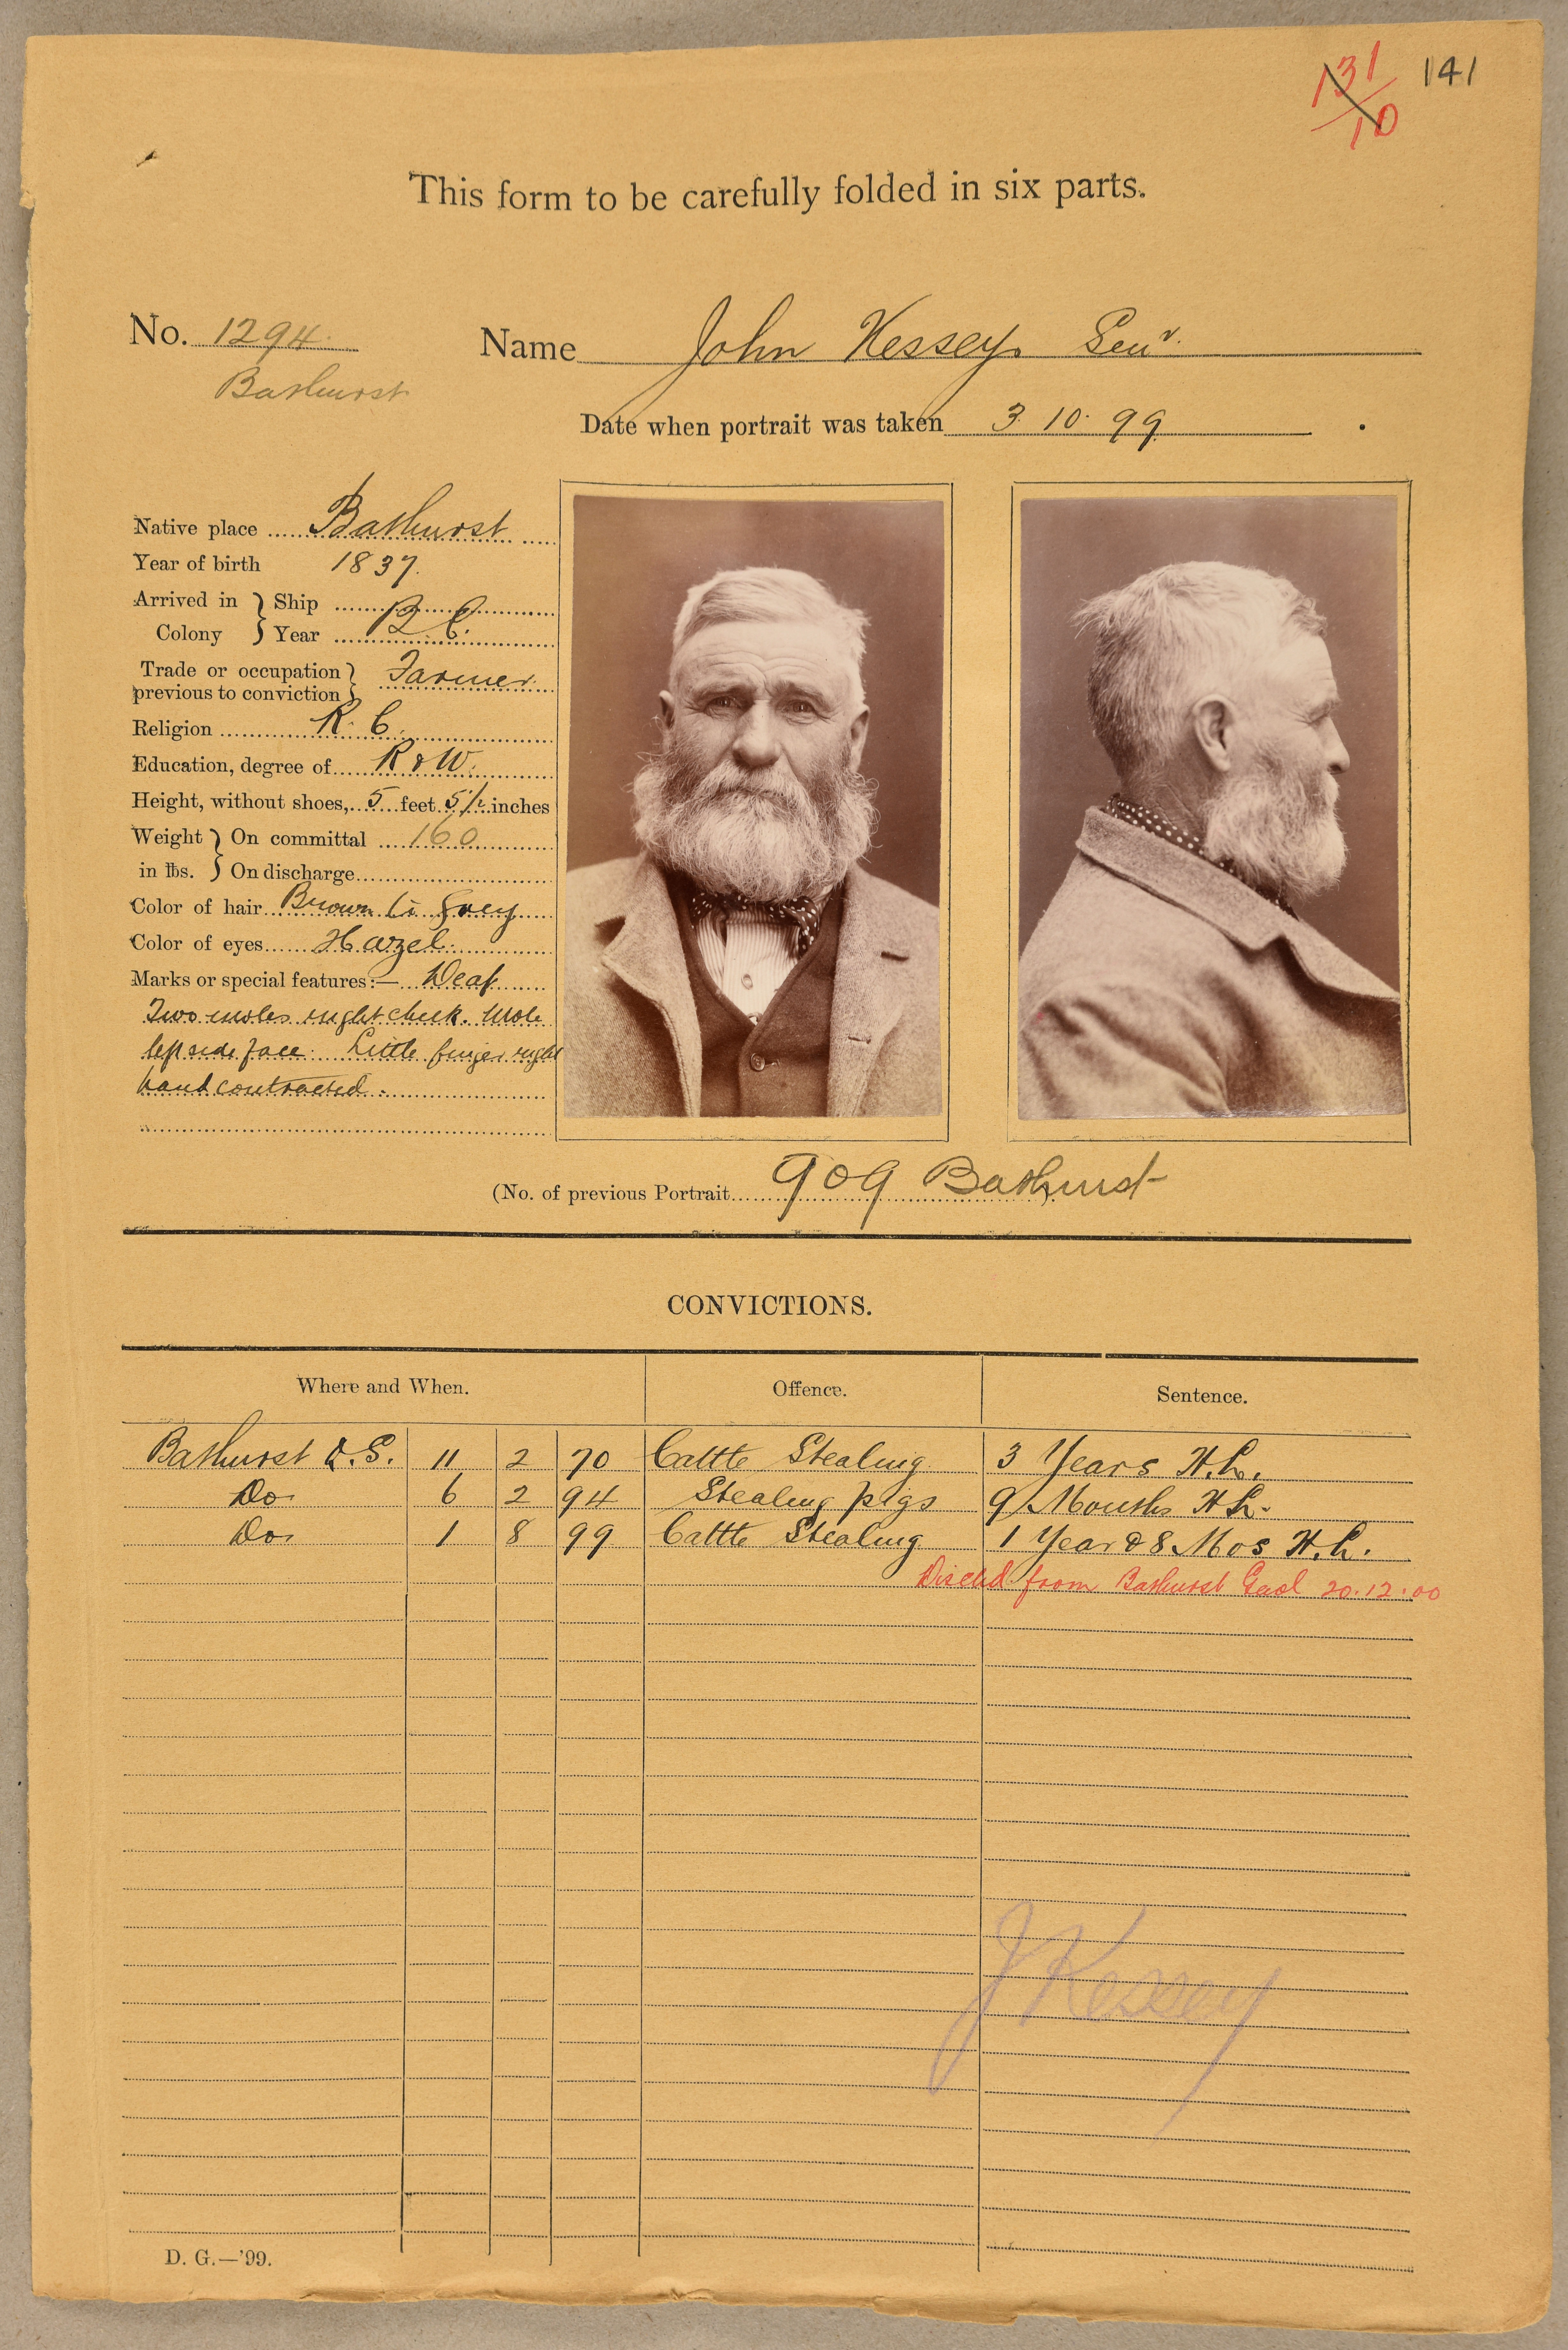 131/10 141
This form to be carefully folded in six parts.
No. 1294. Name John Kessey Senr.
Bathurst
Date when portrait was taken 3. 10. 99
Native place Bathurst
Year of birth 1837.
Arrived in Colony } Ship
Year B.C.
Trade or occupation previous to conviction } Farmer.
Religion R. C.
Education, degree of R & W.
Height, without shoes, 5 feet 5½ inches
Weight in lbs. } On committal 160
On discharge
Color of hair Brown to Grey
Color of eyes Hazel.
Marks or special features:— Deaf
Two moles right cheek. Mole
left side face. Little finger right
hand contracted.
(No. of previous Portrait 909 Bathurst )
CONVICTIONS.
Where and When. Offence. Sentence.
Bathurst Q.S. 11 2 70 Cattle Stealing 3 Years H.L.
Do. 6 2 94 Stealing pigs 9 Months H.L.
Do. 1 8 99 Cattle Stealing 1 Year & 8 Mos H.L.
Dischd from Bathurst Gaol 20.12.00
J Kessey
D. G.—'99.